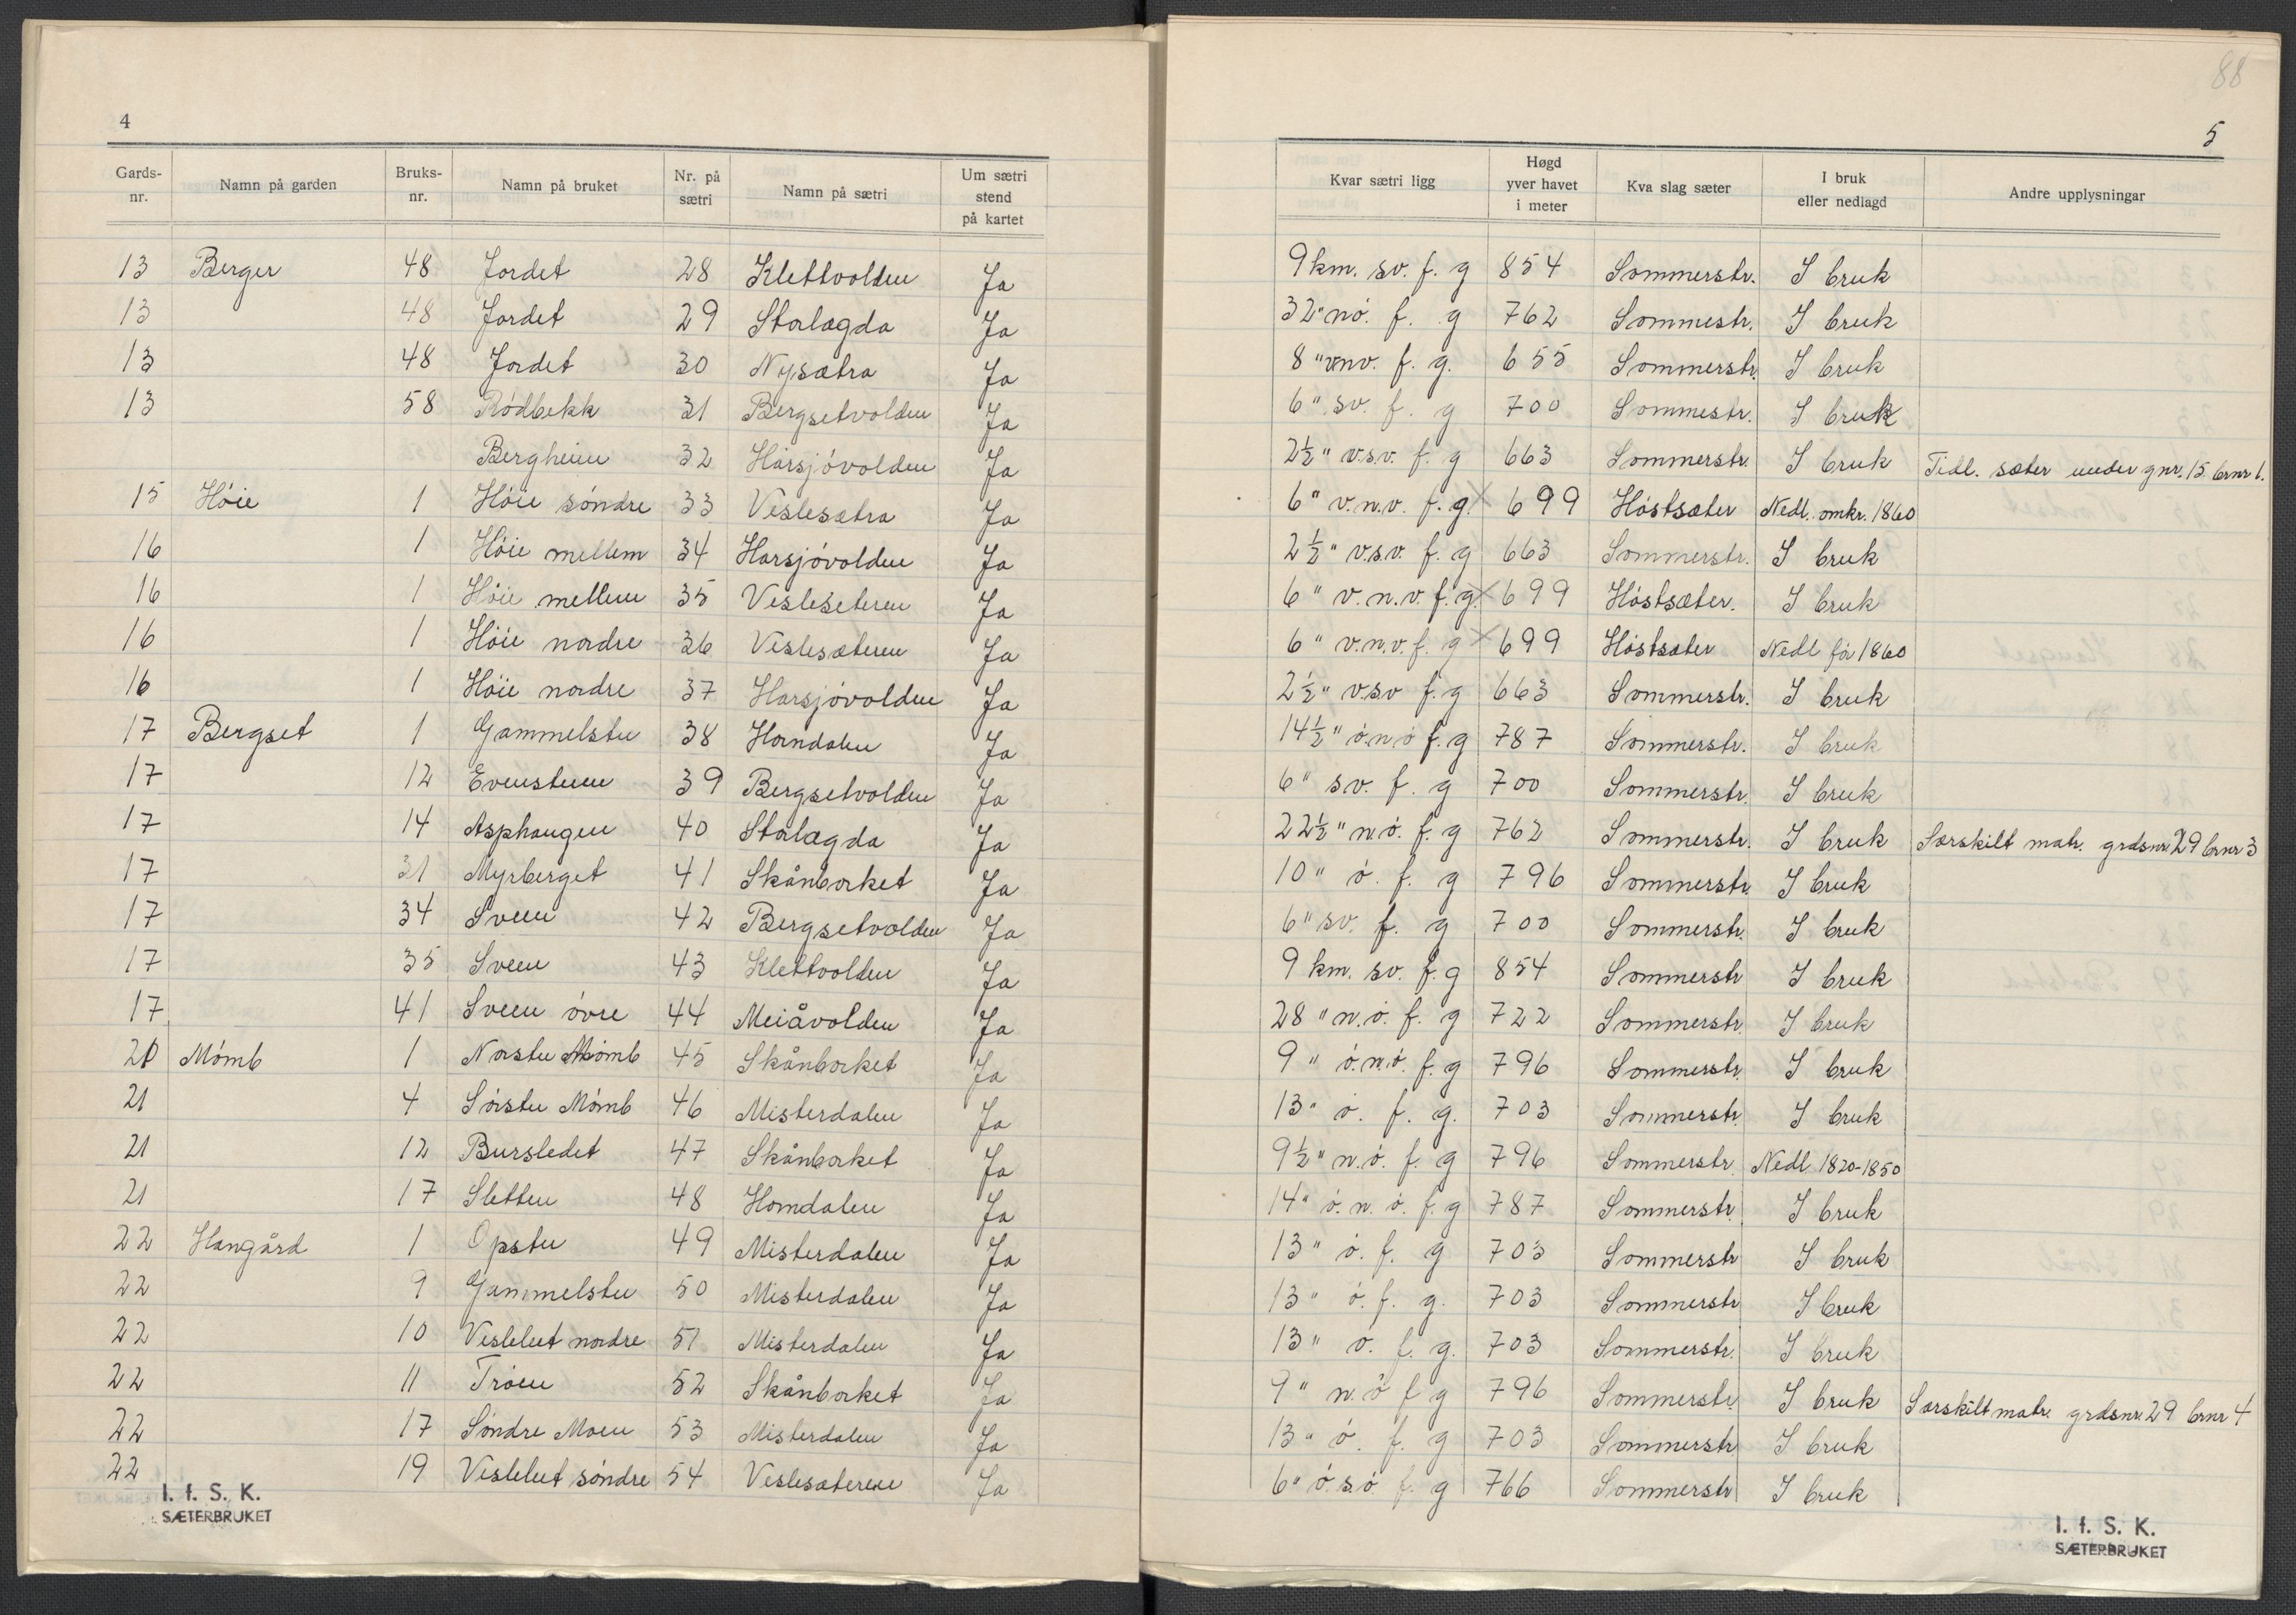 4
Gards-nr. Namn på garden Bruks-nr. Namn på bruket Nr. på sætri Namn på sætri Um sætri stend på kartet
13 Berger 48 Jordet 28 Klettvolden Ja
13 48 Jordet 29 Storlægda Ja
13 48 Jordet 30 Nysætra Ja
13 58 Rödbekk 31 Bergsetvolden Ja
Bergheim 32 Harsjövolden Ja
15 Höie 1 Höie söndre 33 Veslesætra Ja
16 1 Höie mellem 34 Harsjövolden Ja
16 1 Höie mellem 35 Vesleseteren Ja
16 1 Höie nordre 36 Veslesæteren Ja
16 1 Höie nordre 37 Harsjövolden Ja
17 Bergset 1 Gammelstu 38 Horndalen Ja
17 12 Evenstuen 39 Bergsetvolden Ja
17 14 Asphaugen 40 Storlægda Ja
17 31 Myrberget 41 Skånborket Ja
17 34 Sveen 42 Bergsetvolden Ja
17 35 Sveen 43 Klettvolden Ja
17 41 Sveen övre 44 Meiåvolden Ja
21 Mömb 1 Norstu Mömb 45 Skånborket Ja
21 4 Sörstu Mömb 46 Misterdalen Ja
21 12 Bursledet 47 Skånborket Ja
21 17 Sletten 48 Horndalen Ja
22 Hangård 1 Opstu 49 Misterdalen Ja
22 9 Gammelstu 50 Misterdalen Ja
22 10 Veslelut nordre 51 Misterdalen Ja
22 11 Tröen 52 Skånborket Ja
22 17 Söndre Moen 53 Misterdalen Ja
22 19 Veslelut söndre 54 Veslesæteren Ja
I. f. S. K.
SÆTERBRUKET
88
5
Kvar sætri ligg Høgd yver havet i meter Kva slag sæter I bruk eller nedlagd Andre upplysningar
9 km. sv. f. g 854 Sommerstr. I bruk
32 " nö. f. g 762 Sommestr. I bruk
8 " vnv. f. g. 655 Sommerstr. I bruk
6 " sv. f. g 700 Sommestr. I bruk
2½ " v.s.v. f. g 663 Sommerstr. I bruk Tidl. sæter under gnr. 15 brnr 1.
6 " v.n.v. f. g. X 699 Höstsæter Nedl. omkr. 1860
2½ " v.s.v. f. g 663 Sommerstr. I bruk
6 " v.n.v. f. g. X 699 Höstsæter. I bruk
6 " v.n.v. f. g X 699 Höstsæter Nedl för 1860
2½ " v.s.v f. g 663 Sommerstr. I bruk
14½ " ö.n.ö f. g 787 Sommerstr. I bruk
6 " sv. f. g 700 Sommerstr. I bruk
22½ " n.ö. f. g 762 Sommerstr. I bruk Særskilt matr. grdsnr. 29 brnr 3
10 " ö. f. g 796 Sommerstr. I bruk
6 " sv. f. g 700 Sommerstr. I bruk
9 km. sv. f. g 854 Sommerstr I bruk
28 " n.ö. f. g 722 Sommerstr. I bruk
9 " ö.n.ö. f. g 796 Sommerstr. I bruk
13 " ö. f. g. 703 Sommerstr. I bruk
9½ " n.ö. f. g 796 Sommerstr. Nedl 1820-1850
14 " ö.n.ö. f. g 787 Sommerstr. I bruk
13 " ö. f. g 703 Sommerstr I bruk
13 " ö. f. g. 703 Sommerstr I bruk
13 " ö. f. g. 703 Sommerstr. I bruk
9 " n.ö f g 796 Sommerstr. I bruk Særskilt matr. grdsnr. 29 brnr 4
13 " ö. f. g 703 Sommerstr I bruk
6 " ö.s.ö f. g 766 Sommerstr I bruk
I. f. S. K.
SÆTERBRUKET